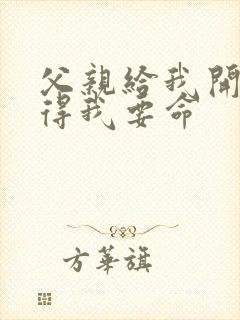 父親給我開
得我要命
方華旗